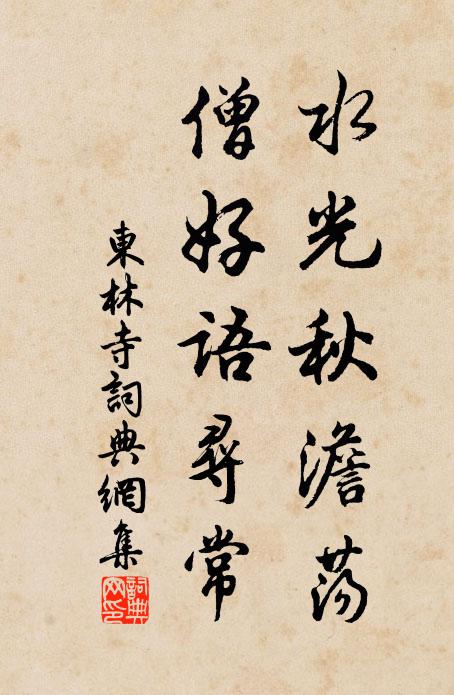 水光秋澹荡
僧好語尋常
東林寺詞典網集
詞典网印